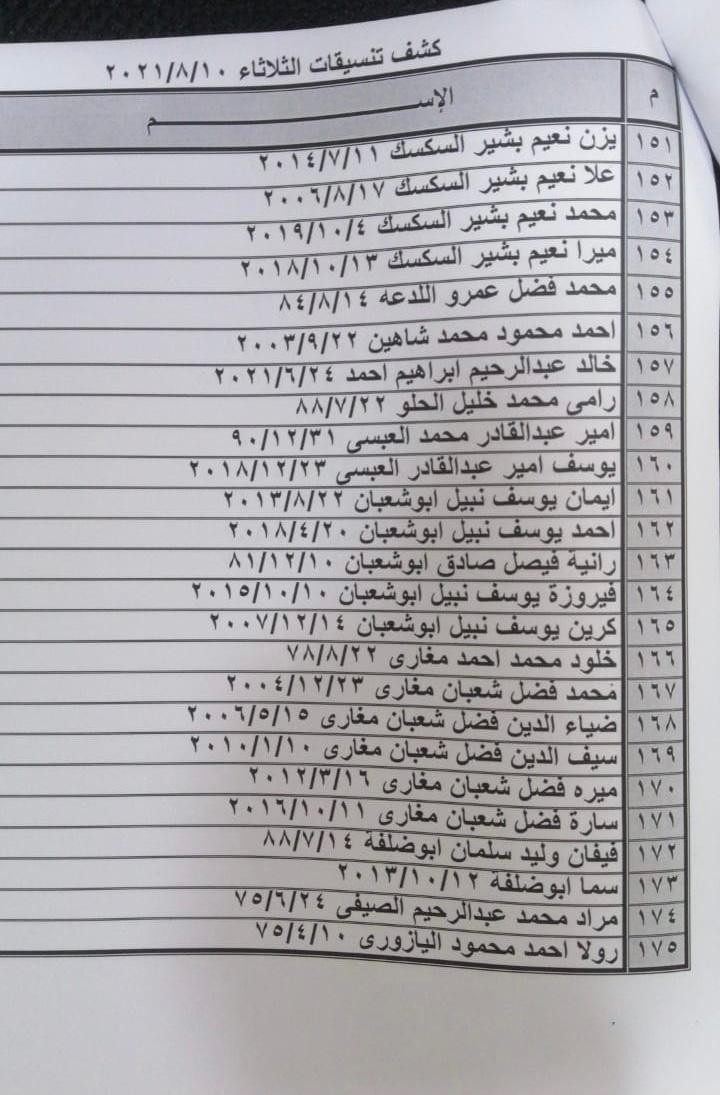 كشف تنسيقات الثلاثاء ٢٠٢١/٨/١٠
م الإســـــــــــــم
١٥١ يزن نعيم بشير السكسك ٢٠١٤/٧/١١
١٥٢ علا نعيم بشير السكسك ٢٠٠٦/٨/١٧
١٥٣ محمد نعيم بشير السكسك ٢٠١٩/١٠/٤
١٥٤ ميرا نعيم بشير السكسك ٢٠١٨/١٠/١٣
١٥٥ محمد فضل عمرو اللدعه ٨٤/٨/١٤
١٥٦ احمد محمود محمد شاهين ٢٠٠٣/٩/٢٢
١٥٧ خالد عبدالرحيم ابراهيم احمد ٢٠٢١/٦/٢٤
١٥٨ رامى محمد خليل الحلو ٨٨/٧/٢٢
١٥٩ امير عبدالقادر محمد العبسى ٩٠/١٢/٣١
١٦٠ يوسف امير عبدالقادر العبسى ٢٠١٨/١٢/٢٣
١٦١ ايمان يوسف نبيل ابوشعبان ٢٠١٣/٨/٢٢
١٦٢ احمد يوسف نبيل ابوشعبان ٢٠١٨/٤/٢٠
١٦٣ رانية فيصل صادق ابوشعبان ٨١/١٢/١٠
١٦٤ فيروزة يوسف نبيل ابوشعبان ٢٠١٥/١٠/١٠
١٦٥ كرين يوسف نبيل ابوشعبان ٢٠٠٧/١٢/١٤
١٦٦ خلود محمد احمد مغارى ٧٨/٨/٢٢
١٦٧ محمد فضل شعبان مغارى ٢٠٠٤/١٢/٢٣
١٦٨ ضياء الدين فضل شعبان مغارى ٢٠٠٦/٥/١٥
١٦٩ سيف الدين فضل شعبان مغارى ٢٠١٠/١/١٠
١٧٠ ميره فضل شعبان مغارى ٢٠١٢/٣/١٦
١٧١ سارة فضل شعبان مغارى ٢٠١٦/١٠/١١
١٧٢ فيفان وليد سلمان ابوضلفة ٨٨/٧/١٤
١٧٣ سما ابوضلفة ٢٠١٣/١٠/١٢
١٧٤ مراد محمد عبدالرحيم الصيفى ٧٥/٦/٢٤
١٧٥ رولا احمد محمود اليازورى ٧٥/٤/١٠